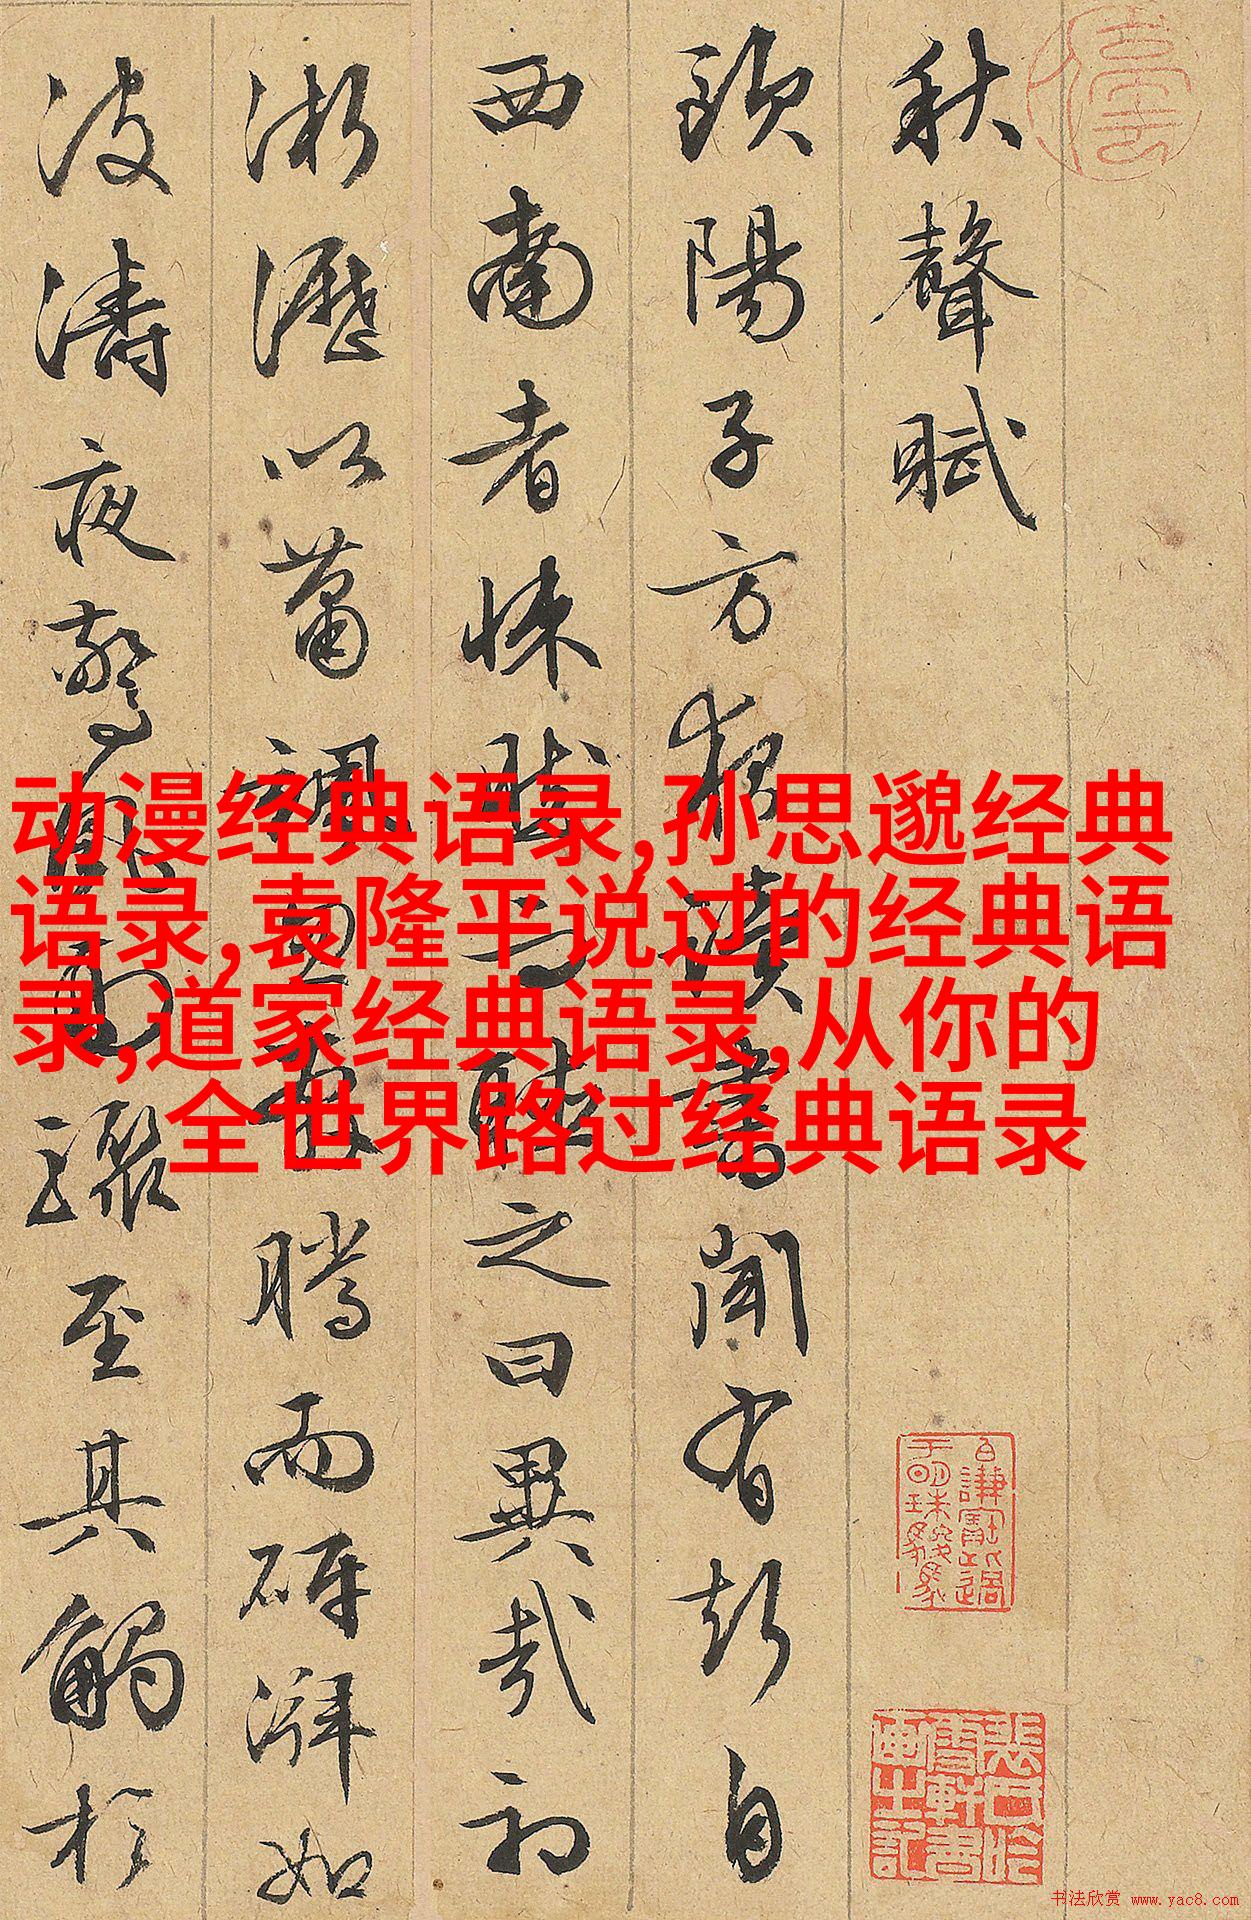 秋聲賦
歐陽子方夜讀書聞有聲自
西南者悚然而聽之曰異哉初
淅瀝以蕭颯忽奔騰而砰湃如
波濤夜驚風雨驟至其觸於
动漫经典语录,孙思邈经典
语录,袁隆平说过的经典语
录,道家经典语录,从你的
全世界路过经典语录
书法欣赏 www.yac8.com